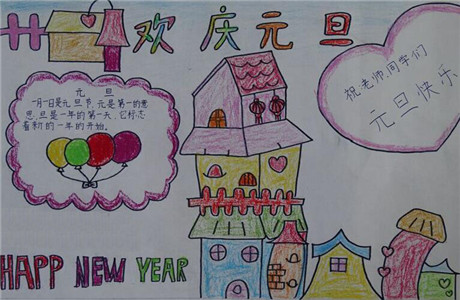 欢庆元旦
元 旦
一月一日是元旦节,元是第一的意
思,旦是一年的第一天,它标志
着新的一年的开始。
祝老师,同学们
元旦快乐
HAPP NEW YEAR